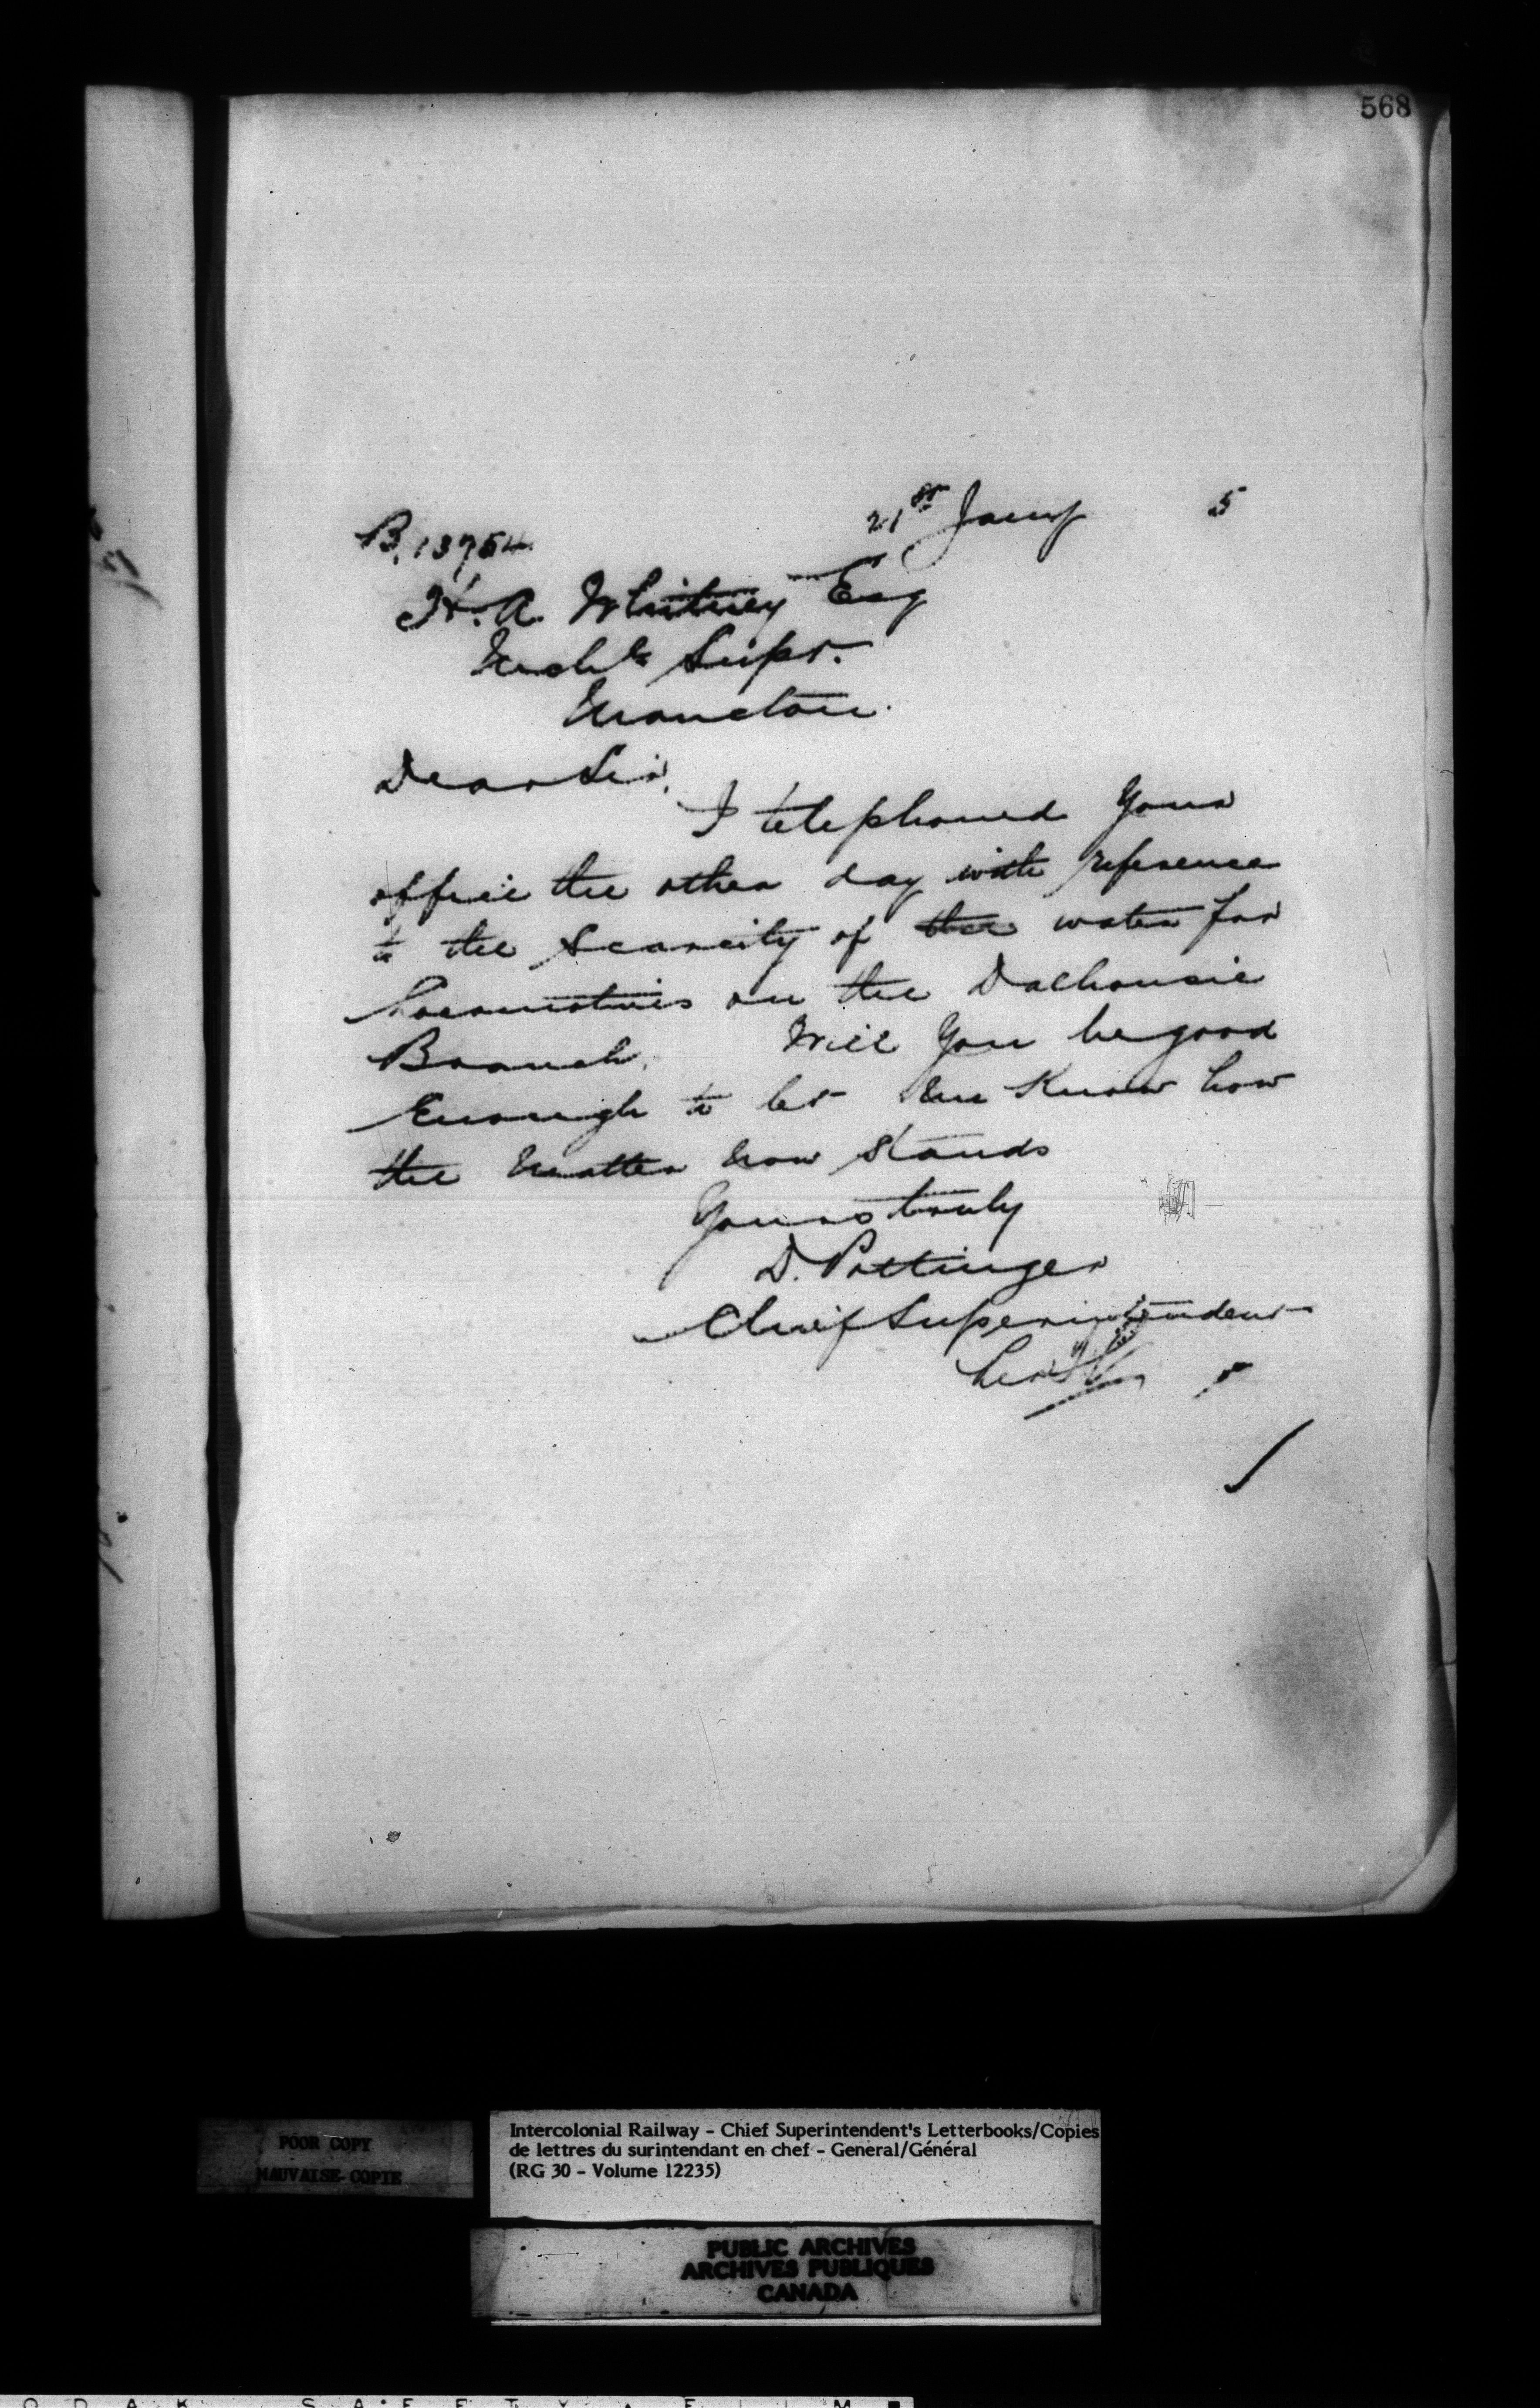 568
21st Jany 5
B. 13754
H. A. Whitney Esq
Mechl Supt.
Moncton.
Dear Sir,
I telephoned your
office the other day with reference
to the scarcity of the water for
Locomotives on the Dalhousie
Branch. Will you be good
Enough to let me Know how
the matter now stands
Yours truly
D. Pottinger
Chief Superintendent
POOR COPY
MAUVAISE COPIE
Intercolonial Railway - Chief Superintendent's Letterbooks/Copies
de lettres du surintendant en chef - General/Général
(RG 30 - Volume 12235)
PUBLIC ARCHIVES
ARCHIVES PUBLIQUES
CANADA